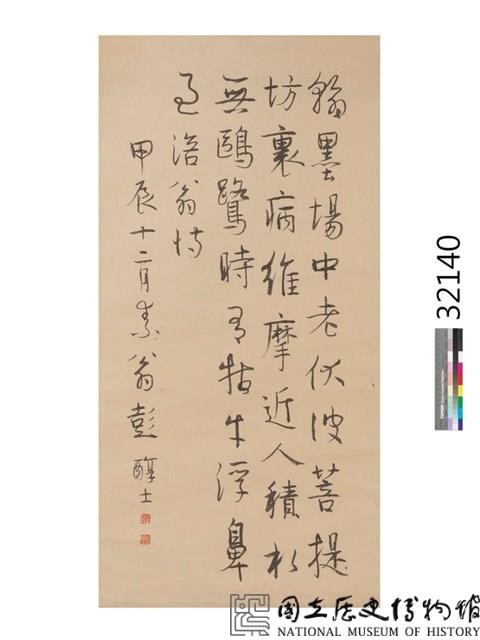 翰墨場中老伏波菩提
坊裏病維摩近人積水
無鷗鷺時有牯牛浮鼻
過涪翁詩
甲辰十二月素翁彭醇士
32140
國立歷史博物館
NATIONAL MUSEUM OF HISTORY